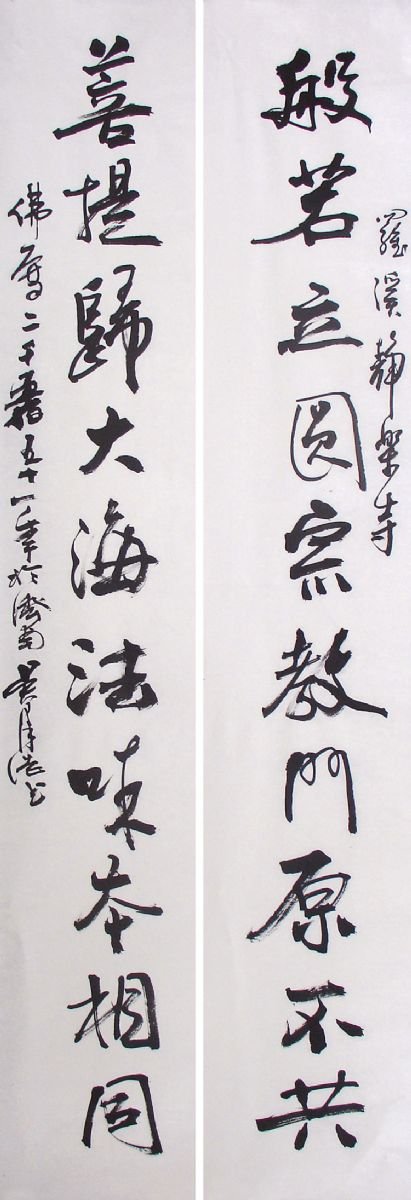 羅溪靜樂寺
般若立圓宗教門原不共
菩提歸大海法味本相同
佛曆二千五百五十一年於濟南